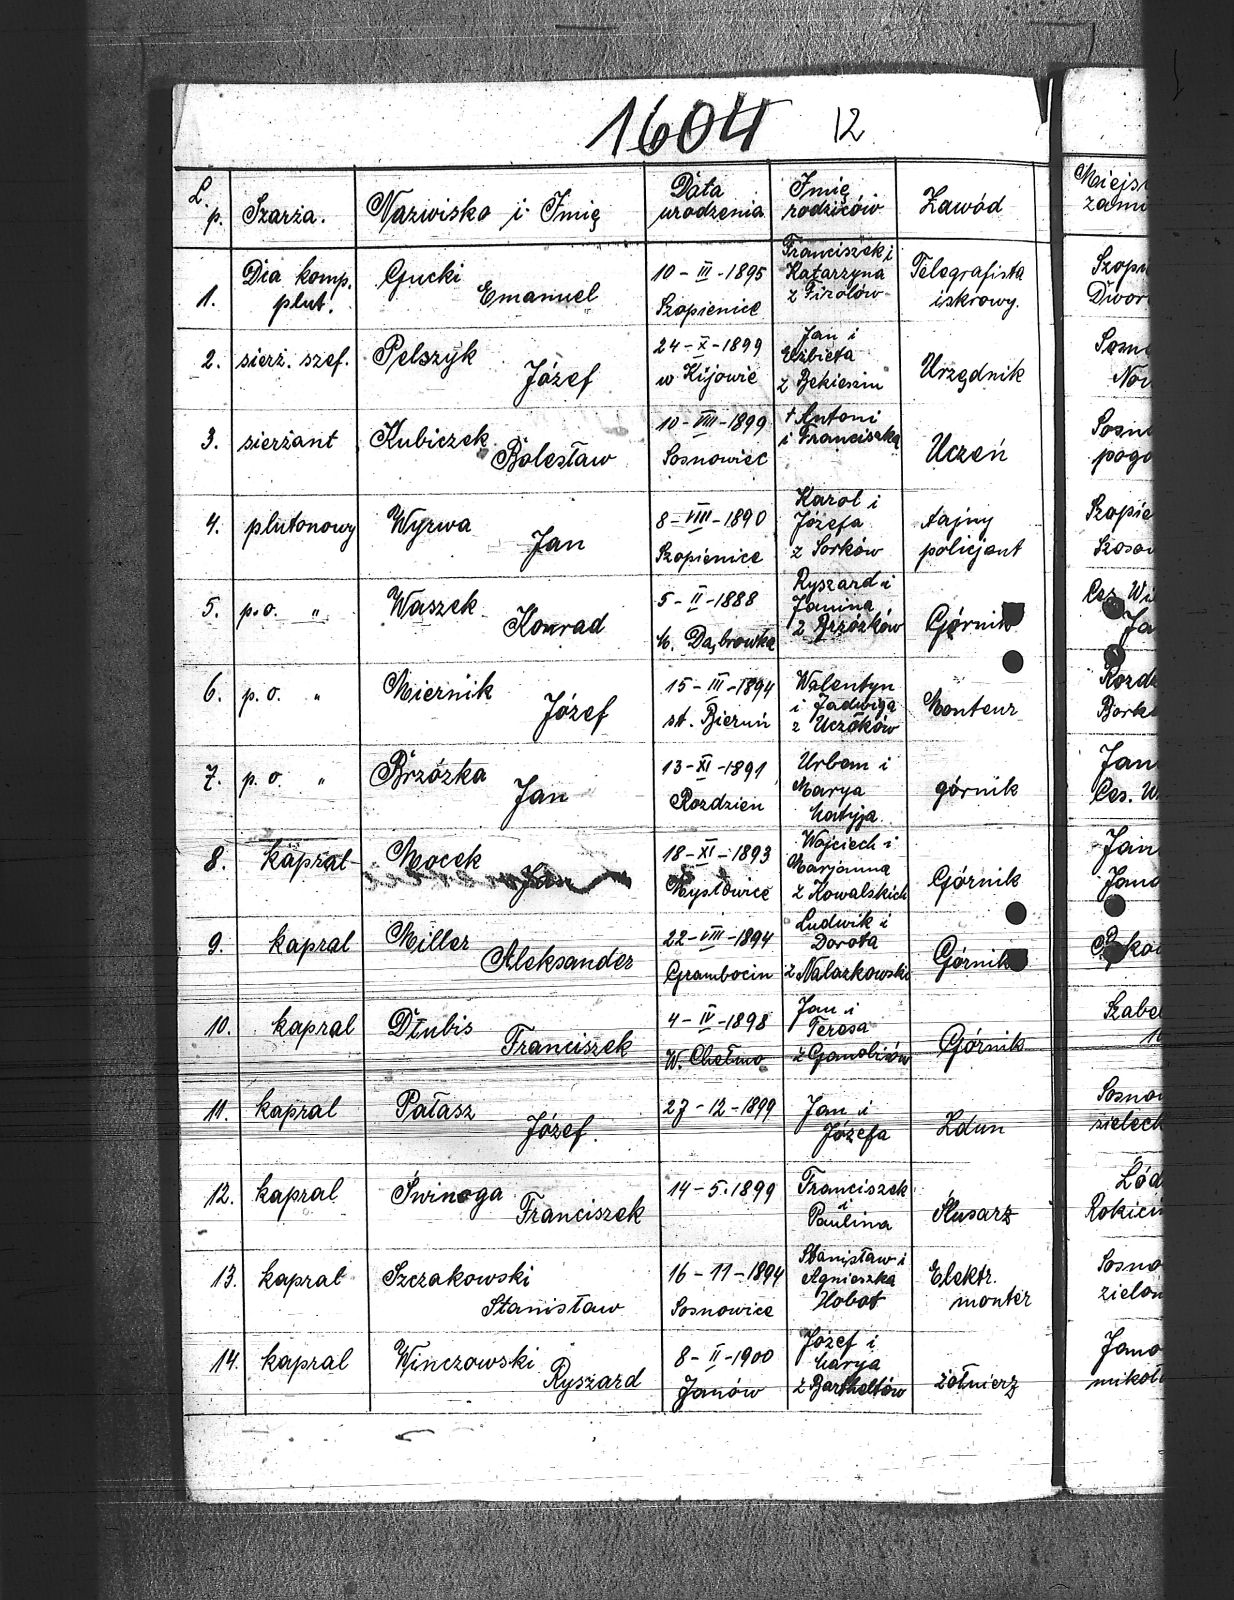 1604 12
L. p. Szarża. Nazwisko i Imię Data urodzenia Imię rodziców Zawód Miejs zami
1. Dca komp. plut. Gucki Emanuel 10-III-1895 Szopienice Franciszek i Katarzyna Telegrafista iskrowy. Szopi
2. sierż. szef. Pelszyk Józef 24-X-1899 w Kijowie Jan i Elżbieta z Bekiesziu Urzędnik Sosno No
3. sierżant Kubiczek Bolesław 10-VIII-1899 Sosnowiec † Antoni i Franciszka Uczeń Sosno pogo
4. plutonowy Wyrwa Jan 8-VIII-1890 Szopienice Karol i Józefa z Sorków tajny policjant Szopie Szoso
5. p.o. „ Waszek Konrad 5-II-1888 M. Dąbrowka Ryszard i Janina z Brzózków Górnik Ces. Wi Ja
6. p.o. „ Miernik Józef 15-III-1894 st. Bieruń Walentyn i Jadwiga z Uczoków Monteur Rozdz Borki
7. p.o. „ Brzózka Jan 13-XI-1891 Rozdzien Urban i Marya Matyja górnik Jan Ces. W
8. kapral Mocek Jan 18-XI-1893 Mysłowice Wojciech i Maryanna z Kowalskich Górnik Jan Jano
9. kapral Miller Aleksander 22-VIII-1894 Grambocin Ludwik i Dorota z Nalazkowski Górnik
10. kapral Dłubis Franciszek 4-IV-1898 W. Chełmo Jan i Teresa Górnik Szabe
11. kapral Pałasz Józef. 27-12-1899 Jan i Józefa Zdun Sosno sielec
12. kapral Świnoga Franciszek 14-5-1899 Franciszek i Paulina Ślusarz Łód Rokici
13. kapral Szczakowski Stanisław 16-11-1894 Sosnowice Stanisław i Agnieszka Hobot Elektr. monter Sosno zielon
14. kapral Winczowski Ryszard 8-II-1900 Janów Józef i Marya z Bartheltów żołnierz Jano mikoł